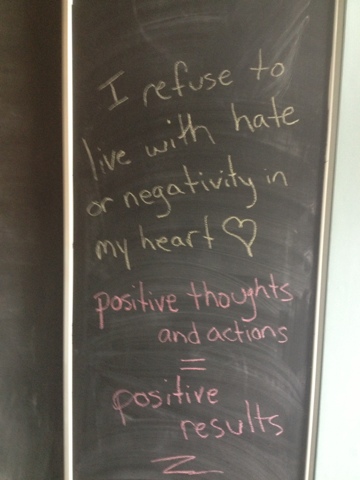 I refuse to
live with hate
or negativity in
my heart ♡
positive thoughts
and actions
=
positive
results